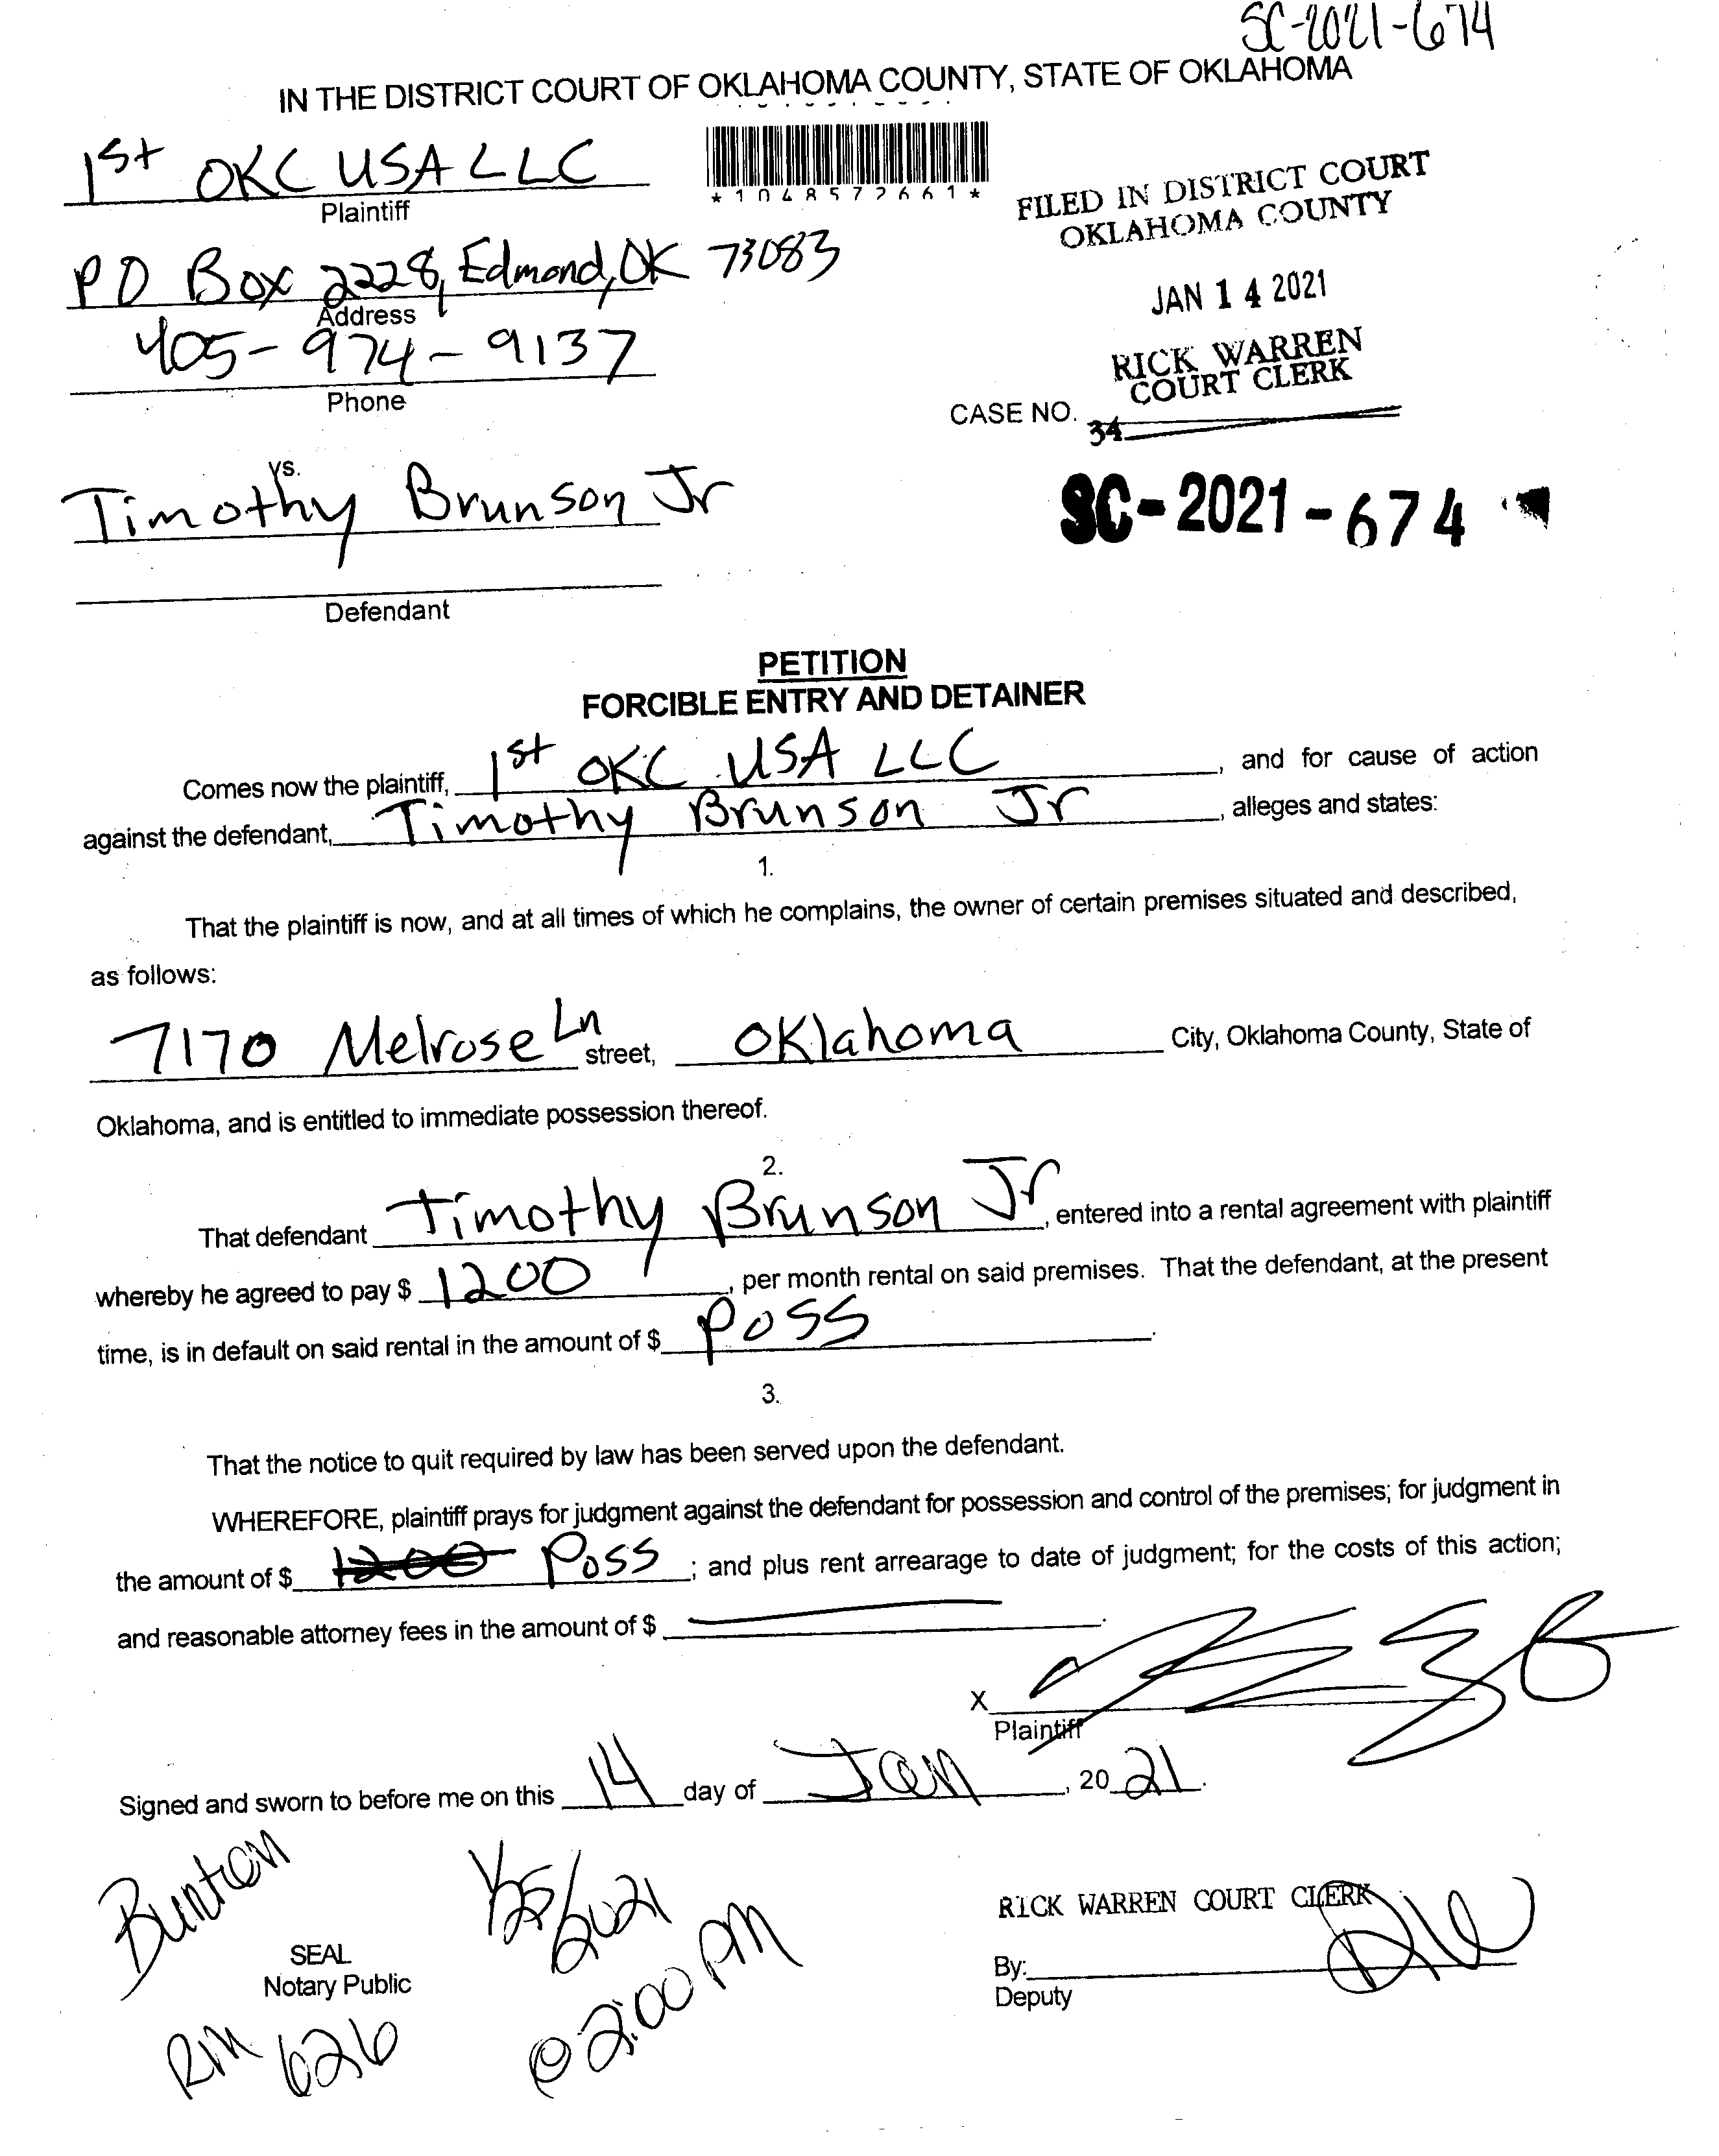 SC-2021-674
IN THE DISTRICT COURT OF OKLAHOMA COUNTY, STATE OF OKLAHOMA
1st OKC USA LLC
Plaintiff
*1048572661*
FILED IN DISTRICT COURT
OKLAHOMA COUNTY
PO Box 2228, Edmond, OK 73083
Address
JAN 14 2021
405-974-9137
Phone
RICK WARREN
COURT CLERK
CASE NO.
34
vs.
Timothy Brunson Jr
SC-2021-674
Defendant
PETITION
FORCIBLE ENTRY AND DETAINER
Comes now the plaintiff, 1st OKC USA LLC, and for cause of action
against the defendant, Timothy Brunson Jr, alleges and states:
1.
That the plaintiff is now, and at all times of which he complains, the owner of certain premises situated and described,
as follows:
7170 Melrose Ln street, Oklahoma City, Oklahoma County, State of
Oklahoma, and is entitled to immediate possession thereof.
2.
That defendant Timothy Brunson Jr, entered into a rental agreement with plaintiff
whereby he agreed to pay $ 1200, per month rental on said premises. That the defendant, at the present
time, is in default on said rental in the amount of $ Poss.
3.
That the notice to quit required by law has been served upon the defendant.
WHEREFORE, plaintiff prays for judgment against the defendant for possession and control of the premises; for judgment in
the amount of $ 1200 Poss; and plus rent arrearage to date of judgment; for the costs of this action;
and reasonable attorney fees in the amount of $
X
Plaintiff
Signed and sworn to before me on this 14 day of Jan, 2021.
1/25/2021
@ 2:00 PM
RICK WARREN COURT CLERK
SEAL
Notary Public
By:
Deputy
RM 626